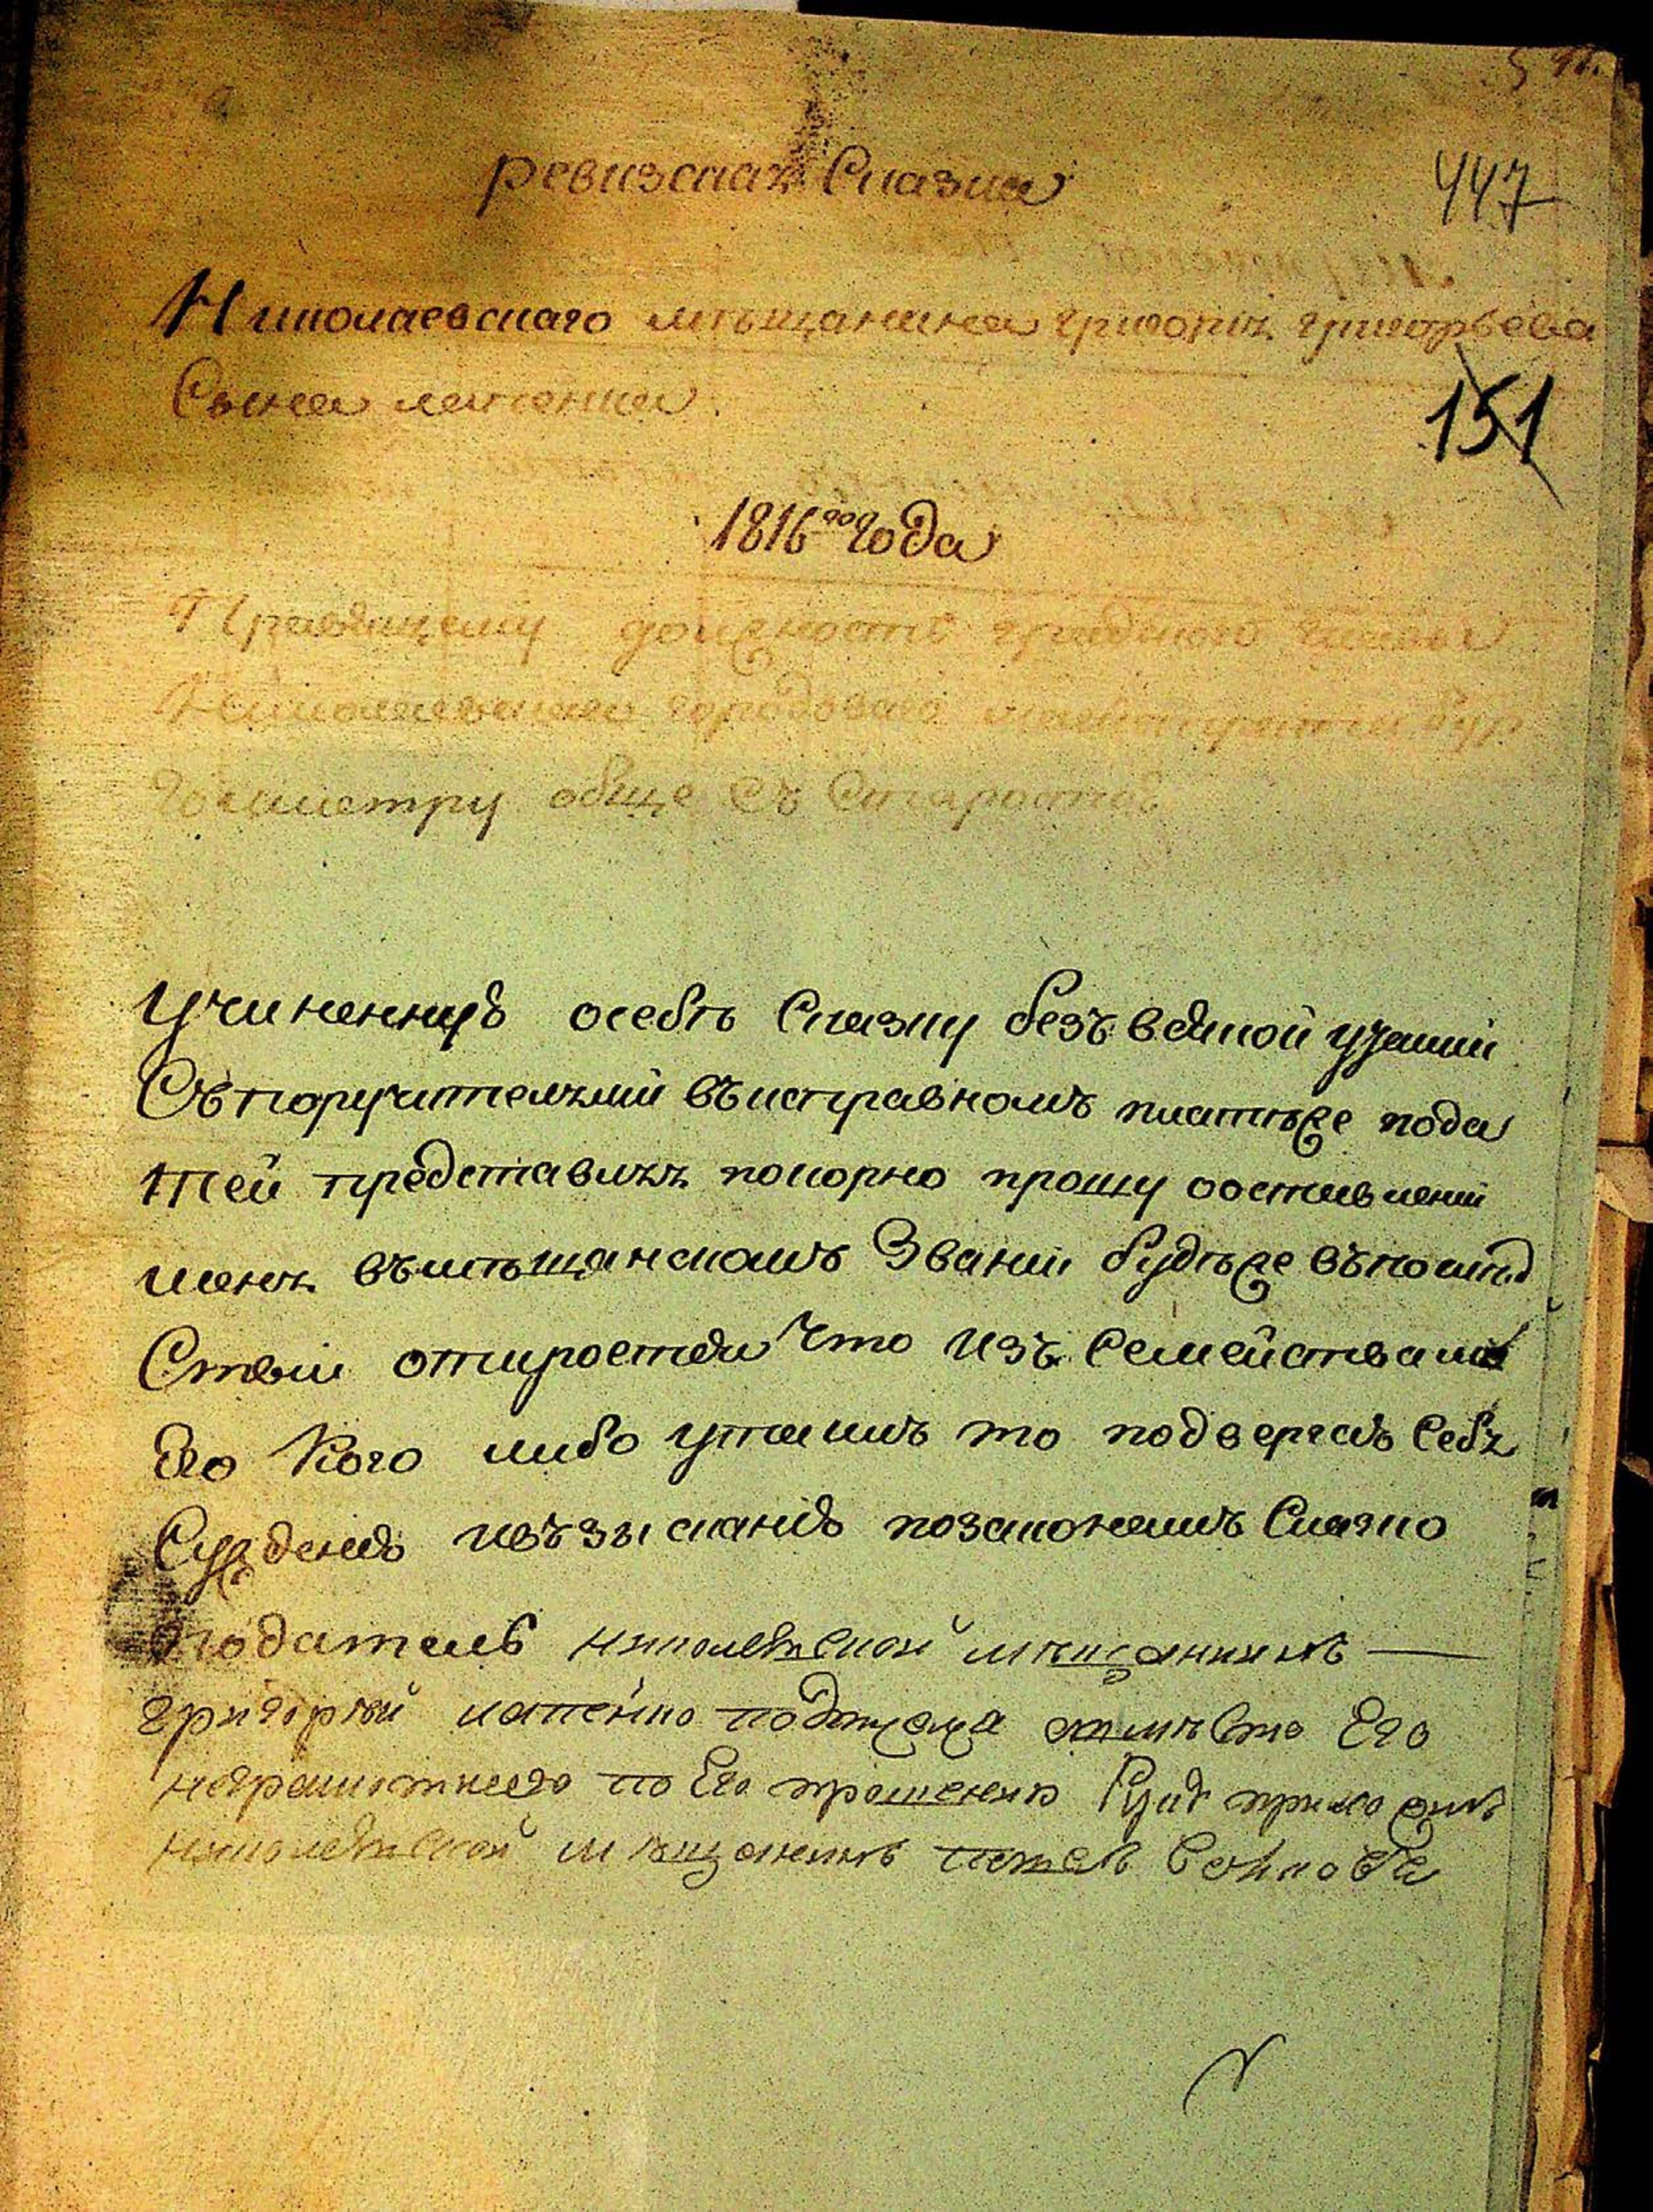 447
ревизская Сказка
Николаевскаго мѣщанина григорія григорьева
Сына лапенка.
151
1816 го года
Правящему должность градской главы
Николаевскаго городоваго магистрата бур
гомистру обще съ Старостой
Учиненную осебѣ Сказку безъ всякой утайки
Съ поручителями въ исправномъ платѣже пода
тей представляя покорно прошу ооставленіи
меня въ мѣщанскомъ Званіи будѣже въ послѣд
Ствіи откроется что изъ Семейства мо
Его Кого либо утаилъ то подвергаю Себя
Сужденію и взысканію по законамъ Сказко
податель николаевской мѣщанинъ —
григорій лапенко подписуюся а вмѣсто Его
неграмотнаго по Его прошению Руку приложилъ
николаевской мѣщанинъ